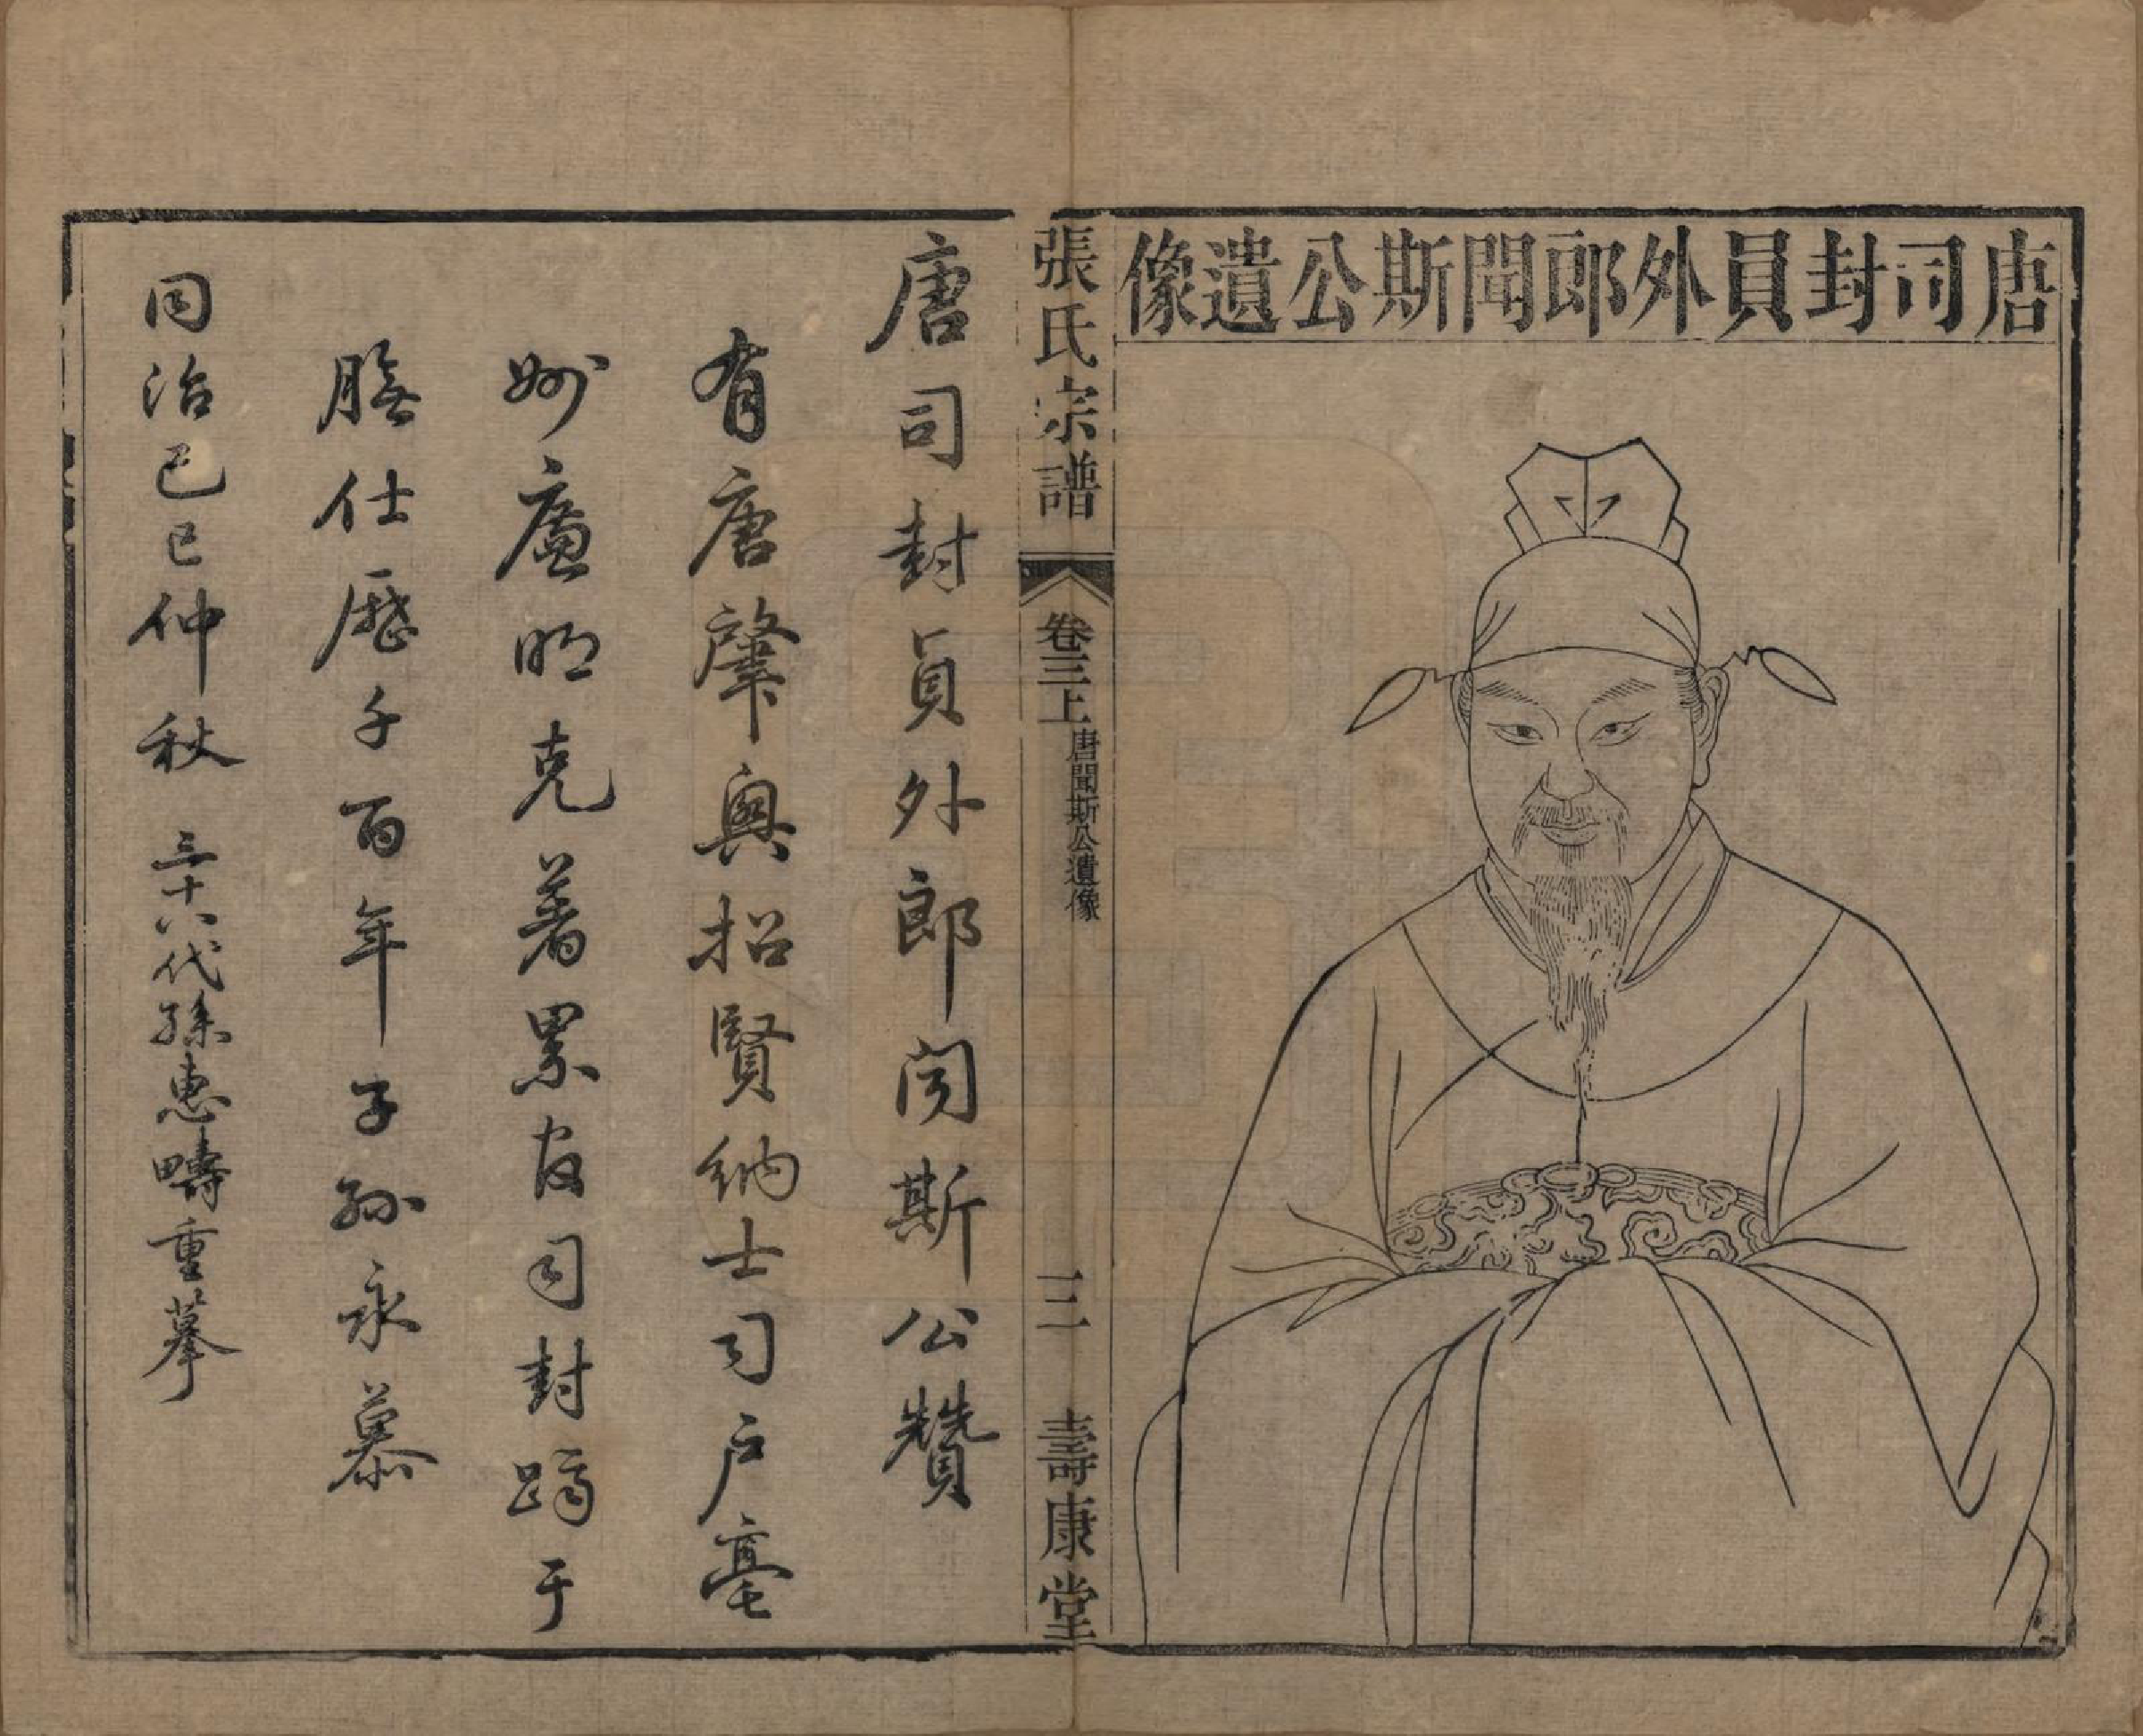 唐司封員外郎聞斯公遺像
張氏宗譜
卷三上
唐聞斯公遺像
三
壽康堂
唐司封員外郎聞斯公贊
有唐肇興招賢納士司戶亳
州廉明克著累官司封躋于
膴仕歷千百年子孫永慕
同治己巳仲秋 三十八代孫惠疇重摹